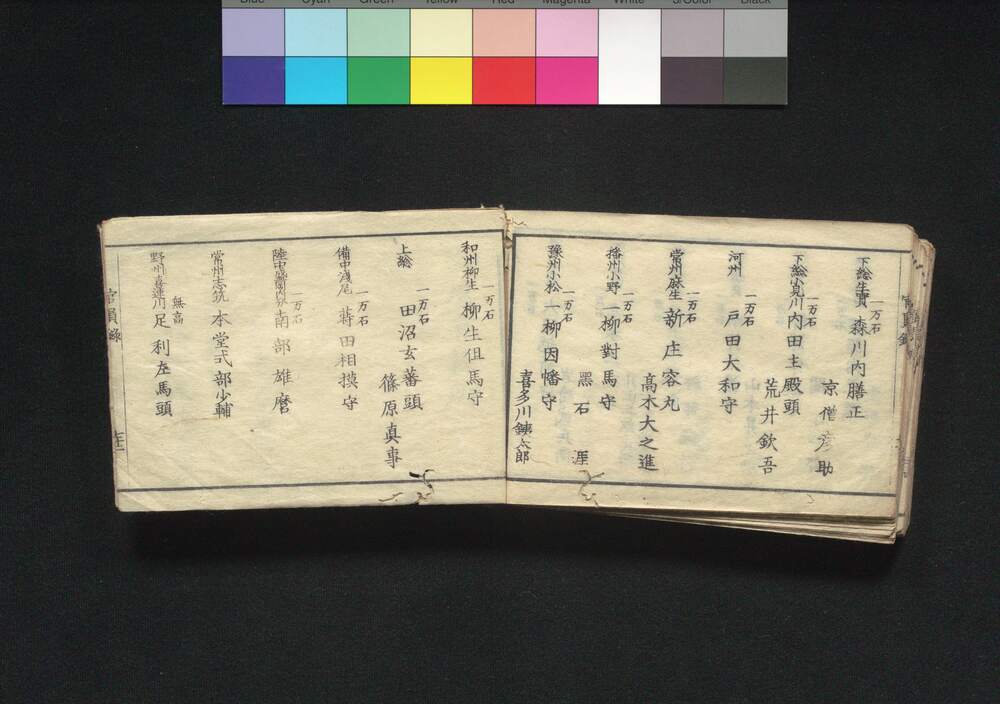 Blue Cyan Green Yellow Red Magenta White 3/Color Black
下総生實 一万石 森川内膳正
京僧彦助
下総小見川 一万石 内田主殿頭
荒井欽吾
河州 一万石 戸田大和守
常州麻生 一万石 新庄容丸
髙木大之進
播州小野 一万石 一柳對馬守
黑石 涯
豫州小松 一万石 一柳因幡守
喜多川鉄太郎
和州柳生 一万石 柳生但馬守
上総 一万石 田沼玄蕃頭
篠原真事
備中浅尾 一万石 蒔田相摸守
一万石 南部雄麿
常州志筑 本堂式部少輔
野州喜連川 無高 足利左馬頭
官員録